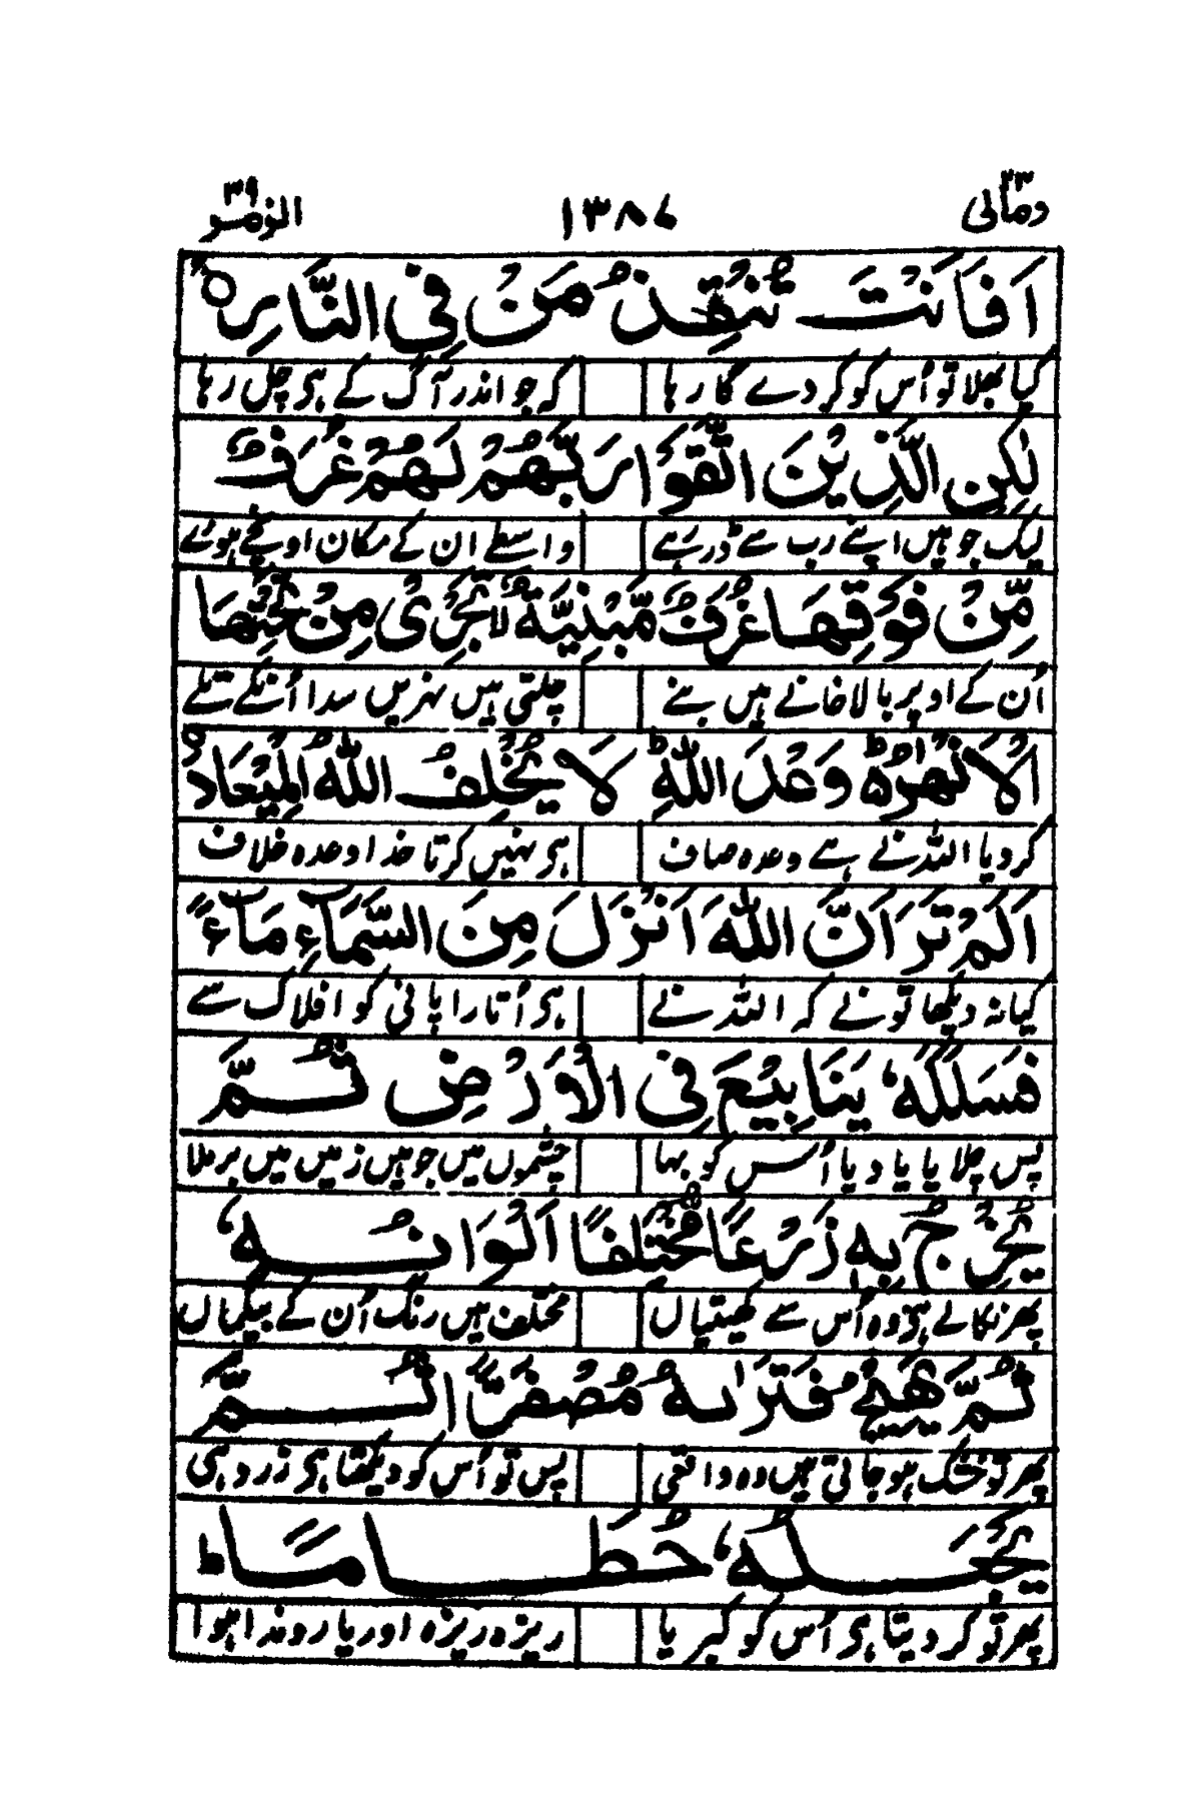 ومالی ٢٣ ١٣٨٧ الزمر ٣٩
اَفَاَنْتَ تُنْقِذُ مَنْ فِی النَّارِ ۝
کیا بھلا تو اُس کو کر دے گا رہا کہ جو اندر آگ کے ہی جل رہا
لٰکِنِ الَّذِیْنَ اتَّقَوْا رَبَّهُمْ لَهُمْ غُرَفٌ
لیک جو ہیں اپنے رب سے ڈر رہے واسطے ان کے مکان اونچے ہوئے
مِّنْ فَوْقِهَا غُرَفٌ مَّبْنِیَّةٌ ۙ تَجْرِیْ مِنْ تَحْتِهَا
اُن کے اوپر بالا خانے ہیں بنے چلتی ہیں نہریں سدا اُنکے تلے
الْاَنْهٰرُ ؕ وَعْدَ اللّٰهِ ؕ لَا یُخْلِفُ اللّٰهُ الْمِیْعَادَ
کر دیا اللہ نے ہے وعدہ صاف ہی نہیں کرتا خدا وعدہ خلاف
اَلَمْ تَرَ اَنَّ اللّٰهَ اَنْزَلَ مِنَ السَّمَآءِ مَآءً
کیا نہ دیکھا تو نے کہ اللہ نے ہی اُتارا پانی کو افلاک سے
فَسَلَكَهٗ یَنَابِیْعَ فِی الْاَرْضِ ثُمَّ
پس چلایا یا دیا اُس کو بہا چشموں میں جو ہیں زمیں میں برملا
یُخْرِجُ بِهٖ زَرْعًا مُّخْتَلِفًا اَلْوَانُهٗ
پھر نکالے ہی وہ اُس سے کھیتیاں مختلف ہیں رنگ اُن کے بیگماں
ثُمَّ یَهِیْجُ فَتَرٰىهُ مُصْفَرًّا ثُمَّ
پھر تو خشک ہو جاتی ہیں وہ واقعی پس تو اُس کو دیکھتا ہی زرد ہی
یَجْعَلُهٗ حُطَامًا ؕ
پھر تو کر دیتا ہی اُس کو کبریا ریزہ ریزہ اور یا روندا ہوا